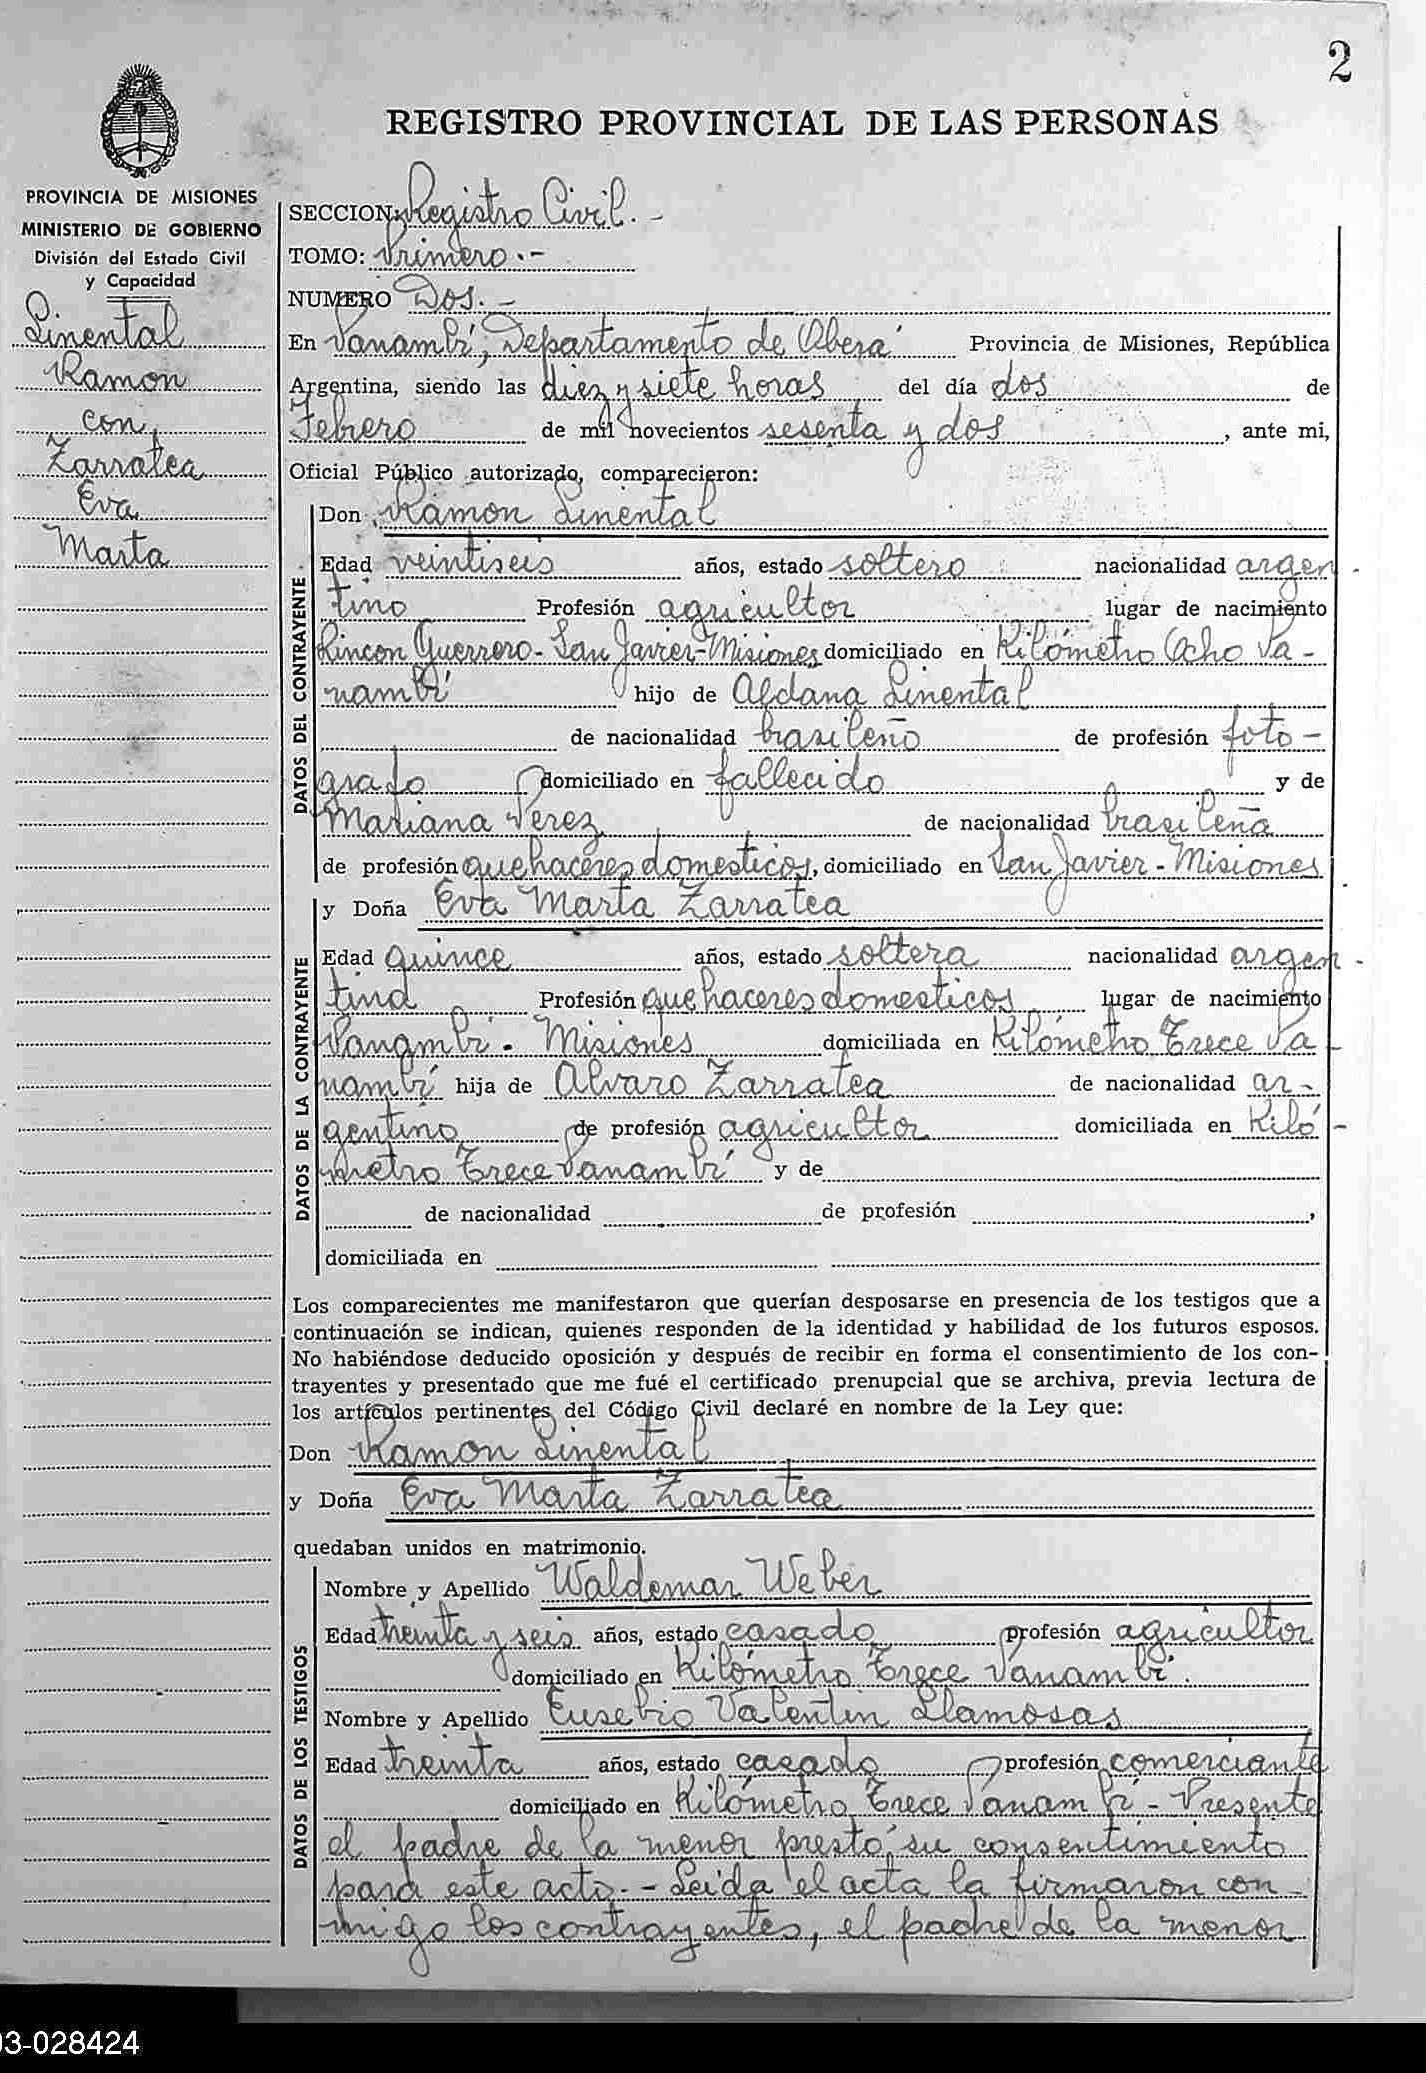 2
REGISTRO PROVINCIAL DE LAS PERSONAS
PROVINCIA DE MISIONES
MINISTERIO DE GOBIERNO
División del Estado Civil
y Capacidad
Linental
Ramon
con
Zarratea
Eva
Marta
SECCION: Registro Civil.-
TOMO: Primero.-
NUMERO Dos.-
En Panambí, Departamento de Oberá Provincia de Misiones, República
Argentina, siendo las diez y siete horas del día dos de
Febrero de mil novecientos sesenta y dos, ante mi,
Oficial Público autorizado, comparecieron:
DATOS DEL CONTRAYENTE
Don Ramon Linental
Edad veintiseis años, estado soltero nacionalidad argen-
tino Profesión agricultor lugar de nacimiento
Rincon Guerrero-San Javier-Misiones domiciliado en Kilómetro Ocho Pa-
nambí hijo de Aldana Linental
de nacionalidad brasileño de profesión foto-
grafo domiciliado en fallecido y de
Mariana Perez de nacionalidad brasileña
de profesión quehaceres domesticos, domiciliado en San Javier-Misiones
DATOS DE LA CONTRAYENTE
y Doña Eva Marta Zarratea
Edad quince años, estado soltera nacionalidad argen-
tina Profesión quehaceres domesticos lugar de nacimiento
Panambí. Misiones domiciliada en Kilómetro Trece Pa-
nambí hija de Alvaro Zarratea de nacionalidad ar-
gentino de profesión agricultor domiciliada en Kiló-
metro Trece Panambí y de
de nacionalidad de profesión ,
domiciliada en
Los comparecientes me manifestaron que querían desposarse en presencia de los testigos que a
continuación se indican, quienes responden de la identidad y habilidad de los futuros esposos.
No habiéndose deducido oposición y después de recibir en forma el consentimiento de los con-
trayentes y presentado que me fué el certificado prenupcial que se archiva, previa lectura de
los artículos pertinentes del Código Civil declaré en nombre de la Ley que:
Don Ramon Linental
y Doña Eva Marta Zarratea
quedaban unidos en matrimonio.
DATOS DE LOS TESTIGOS
Nombre y Apellido Waldemar Weber
Edad treinta y seis años, estado casado profesión agricultor
domiciliado en Kilómetro Trece Panambí.
Nombre y Apellido Eusebio Valentin Llamosas
Edad treinta años, estado casado profesión comerciante
domiciliado en Kilometro Trece Panambí-Presente
el padre de la menor prestó su consentimiento
para este acto.-Leída el acta la firmaron con-
migo los contrayentes, el padre de la menor
03-028424